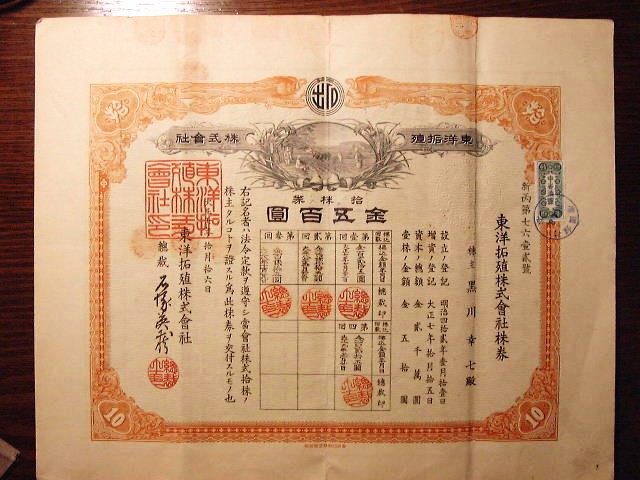 東洋拓殖
株式會社
拾株券
金五百圓
新丙第七六壹貳號
東洋拓殖株式會社株券
株主 黑川幸七殿
設立ノ登記 明治四拾貳年壹月拾壹日
增資ノ登記 大正七年拾月拾五日
資本ノ總額 金貳千萬圓
壹株ノ金額 金五拾圓
第壹回
第貳回
第參回
第四回
總裁印
右記名者ハ法令定款ヲ遵守シ當會社株式拾株ノ
株主タルコトヲ證スル爲此株券ヲ交付スルモノ也
拾月拾六日
東洋拓殖株式會社
總裁
東洋拓殖株式會社印
10
10